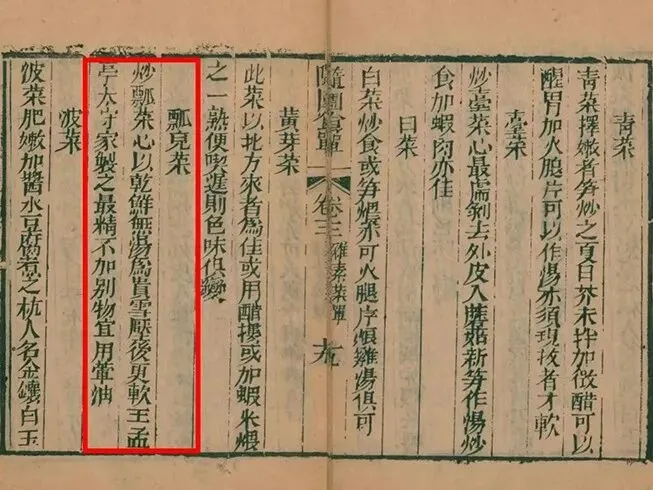 青菜
青菜擇嫩者笋炒之夏日芥末拌加微醋可以
醒胃加火腿片可以作湯亦須現拔者才軟
臺菜
炒臺菜心最懦剝去外皮入蘑菇新笋作湯炒
食加蝦肉亦佳
白菜
白菜炒食或笋煨亦可火腿片煨雞湯俱可
隨園食單
卷三
雜素菜單
十九
黃芽菜
此菜以北方來者爲佳或用醋摟或加蝦米煨
之一熟便喫遲則色味俱變
瓢兒菜
炒瓢菜心以乾鮮無湯爲貴雪壓後更軟王孟
亭太守家製之最精不加別物宜用葷油
波菜
波菜肥嫩加醬水豆腐煮之杭人名金鑲白玉